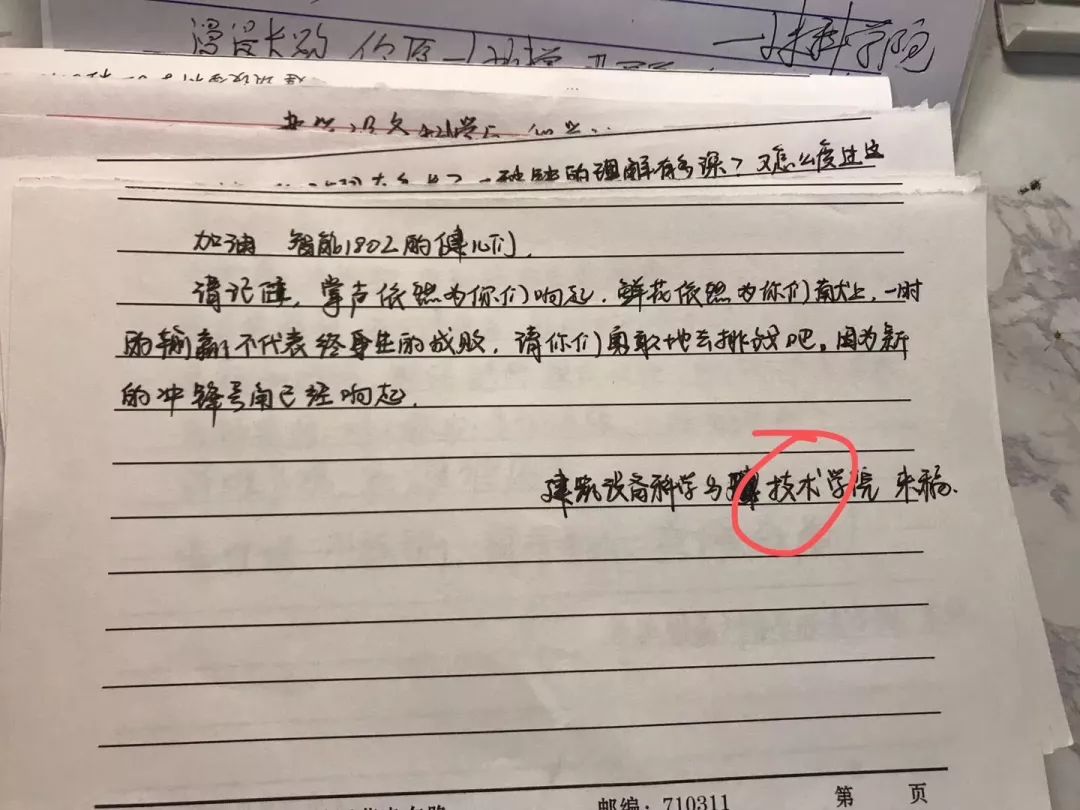 漫漫长路 你愿一
学院
的理解有多深？又怎么度过这
加油 智能1802的健儿们.
请记住，掌声依然为你们响起．鲜花依然为你们献上．一时
的输赢不代表终身的成败，请你们勇敢地去挑战吧。因为新
的冲锋号角已经响起.
建筑设备科学与技术学院 来稿.
邮编：710311
第 页